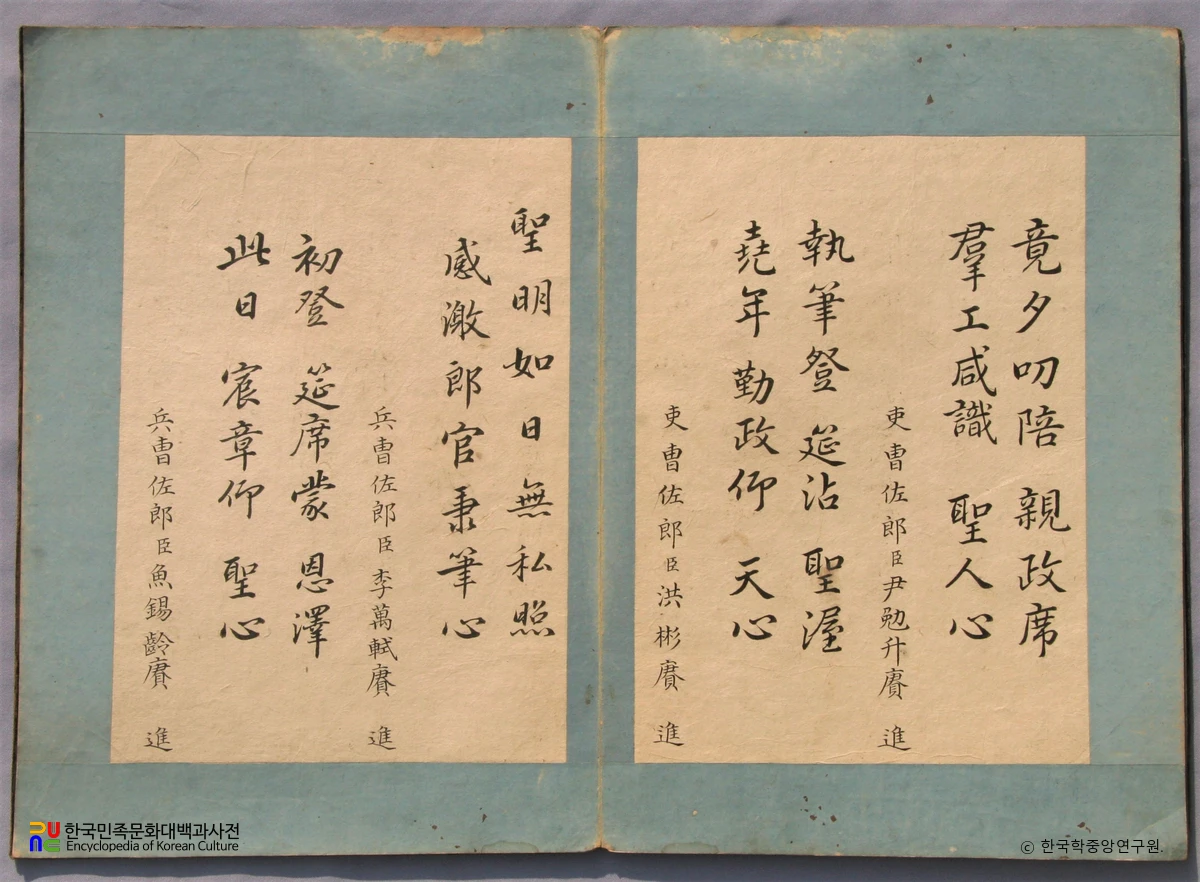 竟夕叨陪 親政席
羣工咸識 聖人心
吏曹佐郎臣尹勉升賡 進
執筆登 筵沾 聖渥
堯年勤政仰 天心
吏曹佐郎臣洪彬賡 進
聖明如日無私照
感激郎官秉筆心
兵曹佐郎臣李萬軾賡 進
初登 筵席蒙 恩澤
此日 宸章仰 聖心
兵曹佐郎臣魚錫齡賡 進
한국민족문화대백과사전
Encyclopedia of Korean Culture
ⓒ 한국학중앙연구원.